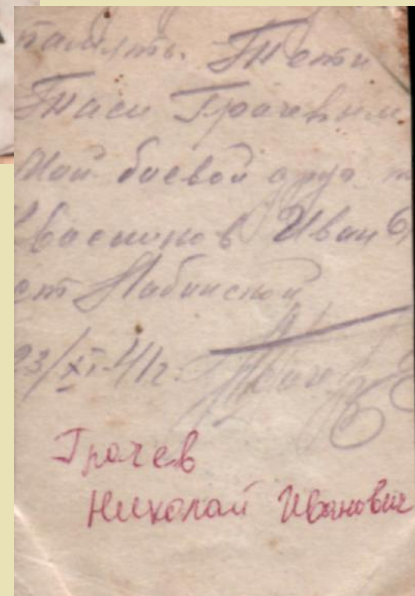 память. Тети
Таси Грачевым
Мой боевой друг
Иван
ст Лабинской
23/XI-41г.
Грачев
Николай Иванович